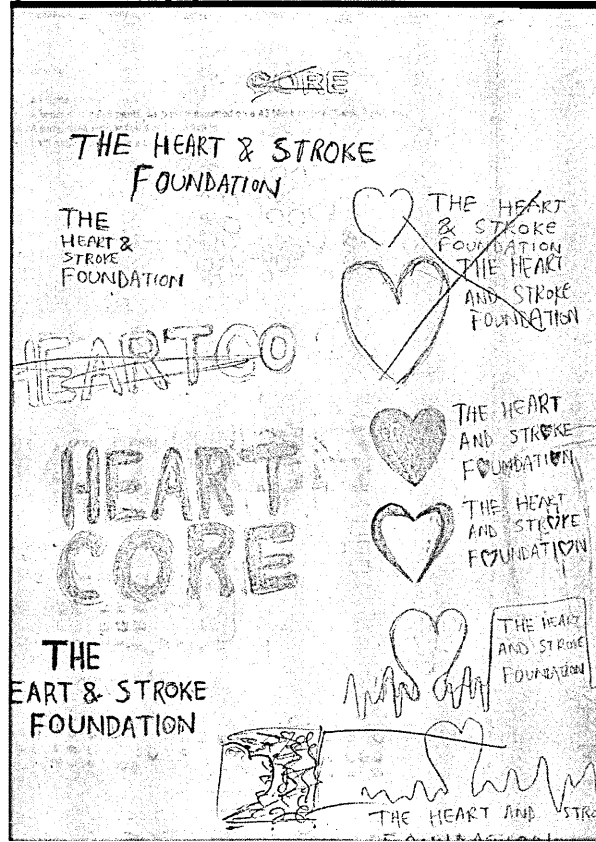 CORE
THE HEART & STROKE
FOUNDATION
THE
HEART &
STROKE
FOUNDATION
THE HEART
& STROKE
FOUNDATION
THE HEART
AND STROKE
FOUNDATION
HEARTCO
THE HEART
AND STROKE
FOUMDATION
HEART
CORE
THE HEART
AND STROKE
FOUNDATION
THE HEART
AND STROKE
FOUNDATION
THE
EART & STROKE
FOUNDATION
THE HEART AND STRO
FOUNDATION